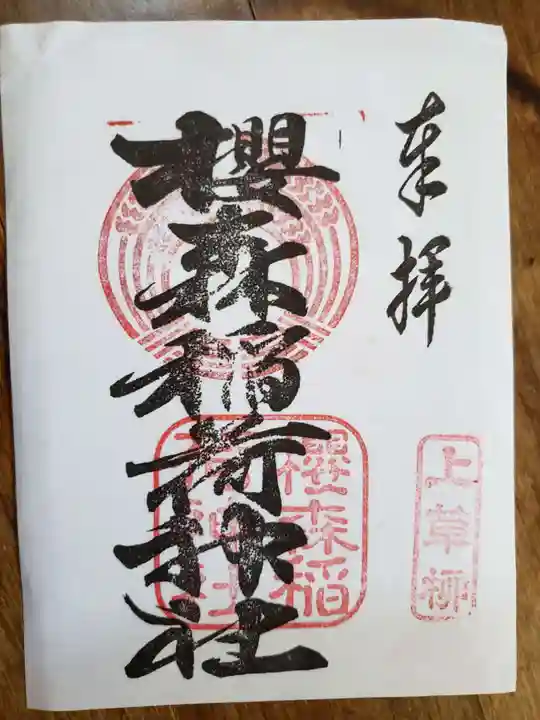 奉拝
櫻森稲荷神社
櫻森稲
荷神社
上草柳